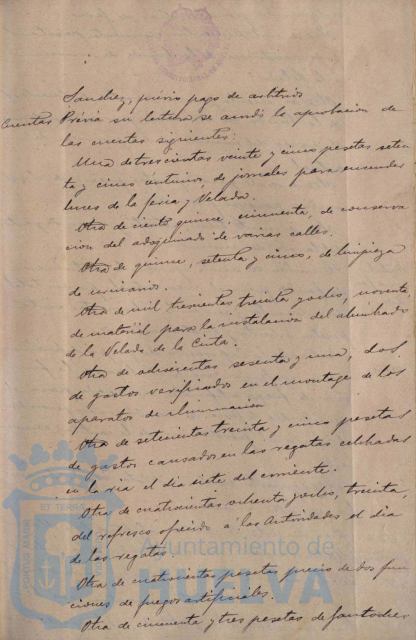 Sanchez, prévio pago de arbitrios
Cuentas Prévia su lectura se acordó la aprobacion de
las cuentas siguientes:
Una de trescientas veinte y cinco pesetas seten
ta y cinco céntimos, de jornales para encender
luces de la feria y Velada.
Otra de ciento quince, cincuenta, de conserva
cion del adoquinado de varias calles.
Otra de quince, setenta y cinco, de limpieza
de urinarios.
Otra de mil trescientas treinta y ocho, noventa
de material para la instalacion del alumbrado
de la Velada de la Cinta.
Otra de doscientas sesenta y una, dos
de gastos verificados en el montage de los
aparatos de iluminacion
Otra de setecientas treinta y cinco pesetas
de gastos causados en las regatas celebradas
en la ria el dia siete del corriente.
Otra de cuatrocientas ochenta y ocho, treinta,
del refresco ofrecido a las Autoridades el dia
de las regatas.
Otra de cuatrocientas pesetas precio de dos fun
ciones de fuegos artificiales.
Otra de cincuenta y tres pesetas de
Ayuntamiento de
HUELVA